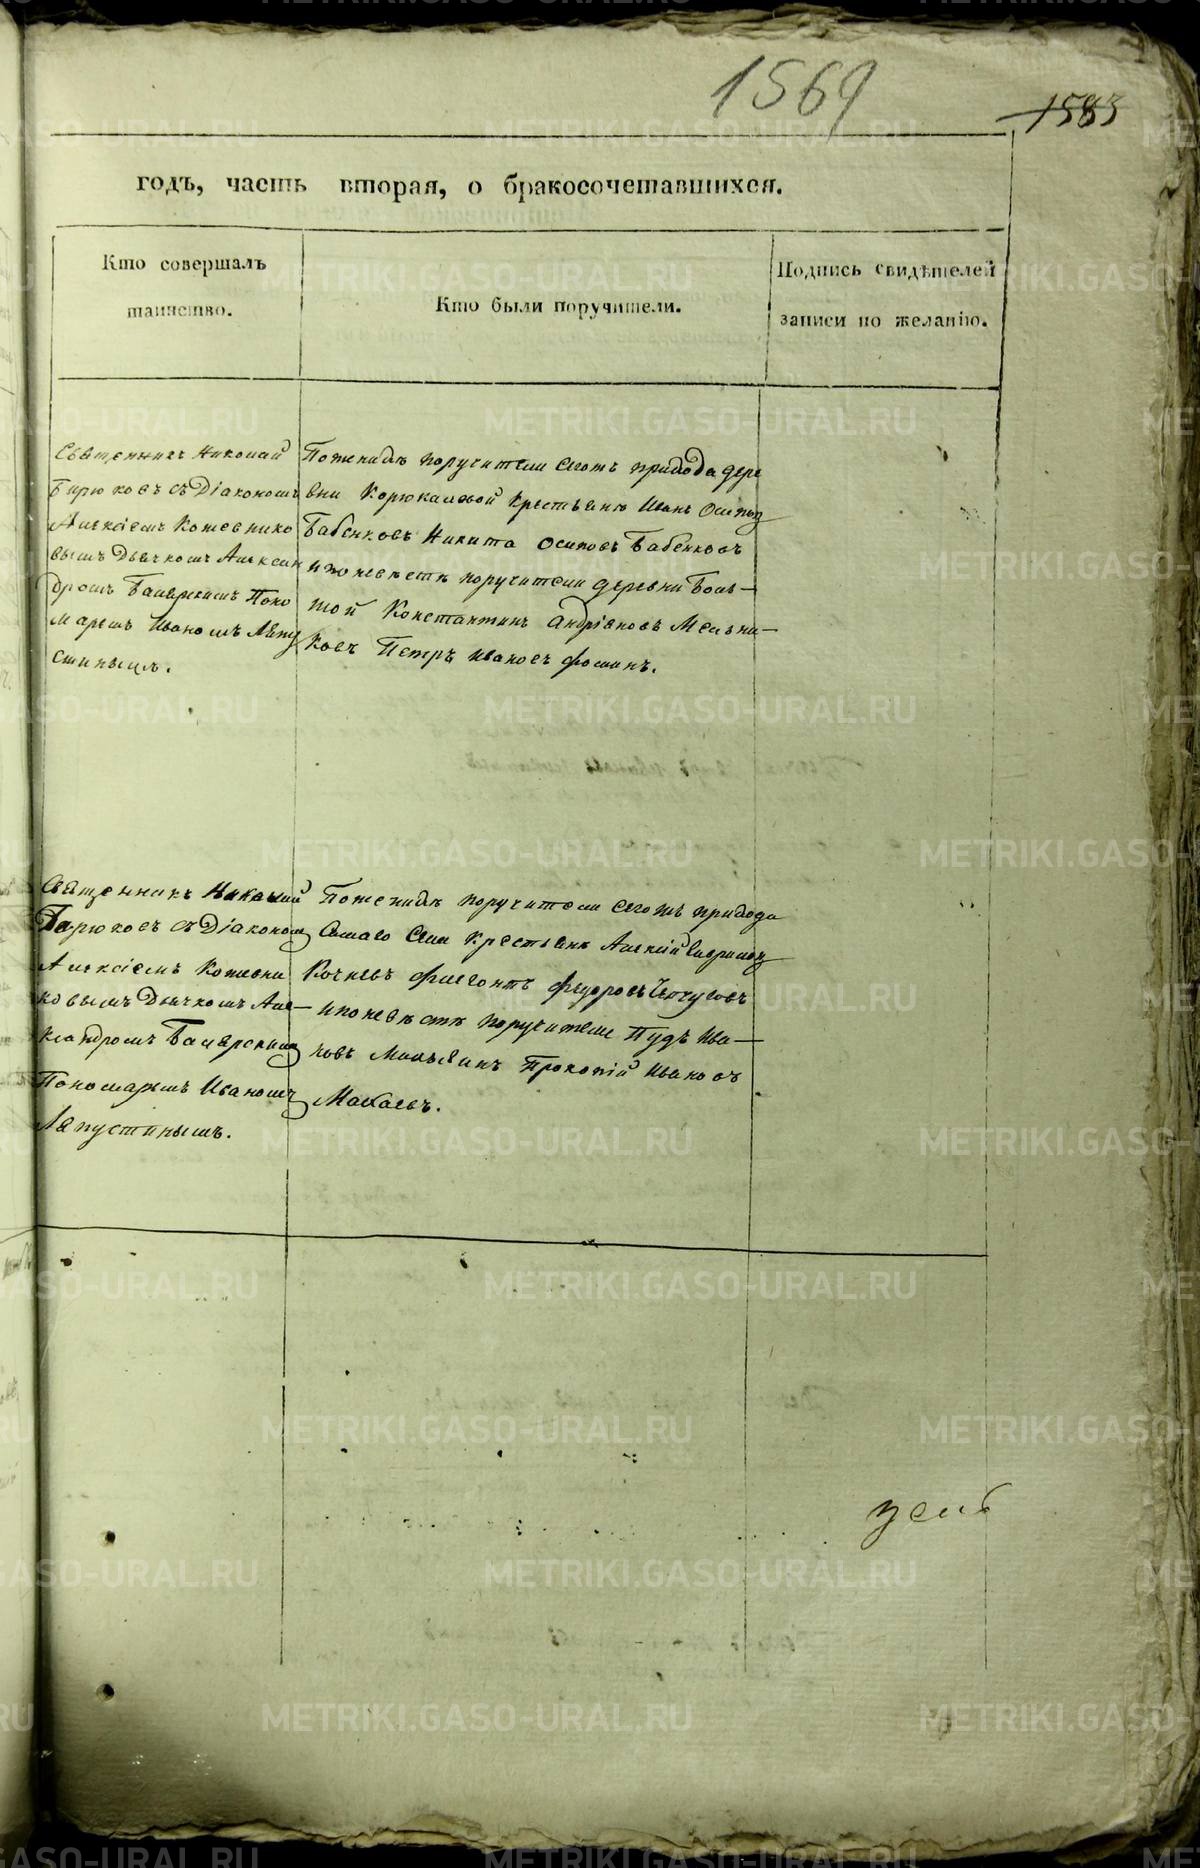 1569
1583
годъ, часть вторая, о бракосочетавшихся.
Кто совершалъ
таинство.
Кто были поручители.
Подпись свидѣтелей
записи по желанію.
Священникъ Николай
Бирюковъ съ Діакономъ
Алексіемъ Кожевнико
вымъ Дьячкомъ Алексан
дромъ Поно
маремъ Иваномъ Лапу
стинымъ.
По женихѣ поручители сегожъ прихода дере
вни крестьяне Иванъ Осиповъ
Бабенковъ Никита Осиповъ Бабенковъ
и по невѣстѣ поручители деревни Боль-
шой Константинъ Андріановъ Мельни-
ковъ Петръ Ивановъ Фоминъ.
Священникъ Николай
Бирюковъ съ Діакономъ
Алексіемъ Кожевни
ковымъ Дьячкомъ Але-
ксандромъ
Пономаремъ Иваномъ
Лапустинымъ.
По женихѣ поручители сегожъ прихода
самаго села крестьяне Алексій
Кочневъ Федоровъ
и по невѣстѣ поручители Пудъ Ива-
новъ Прокопій Ивановъ
METRIKI.GASO-URAL.RU